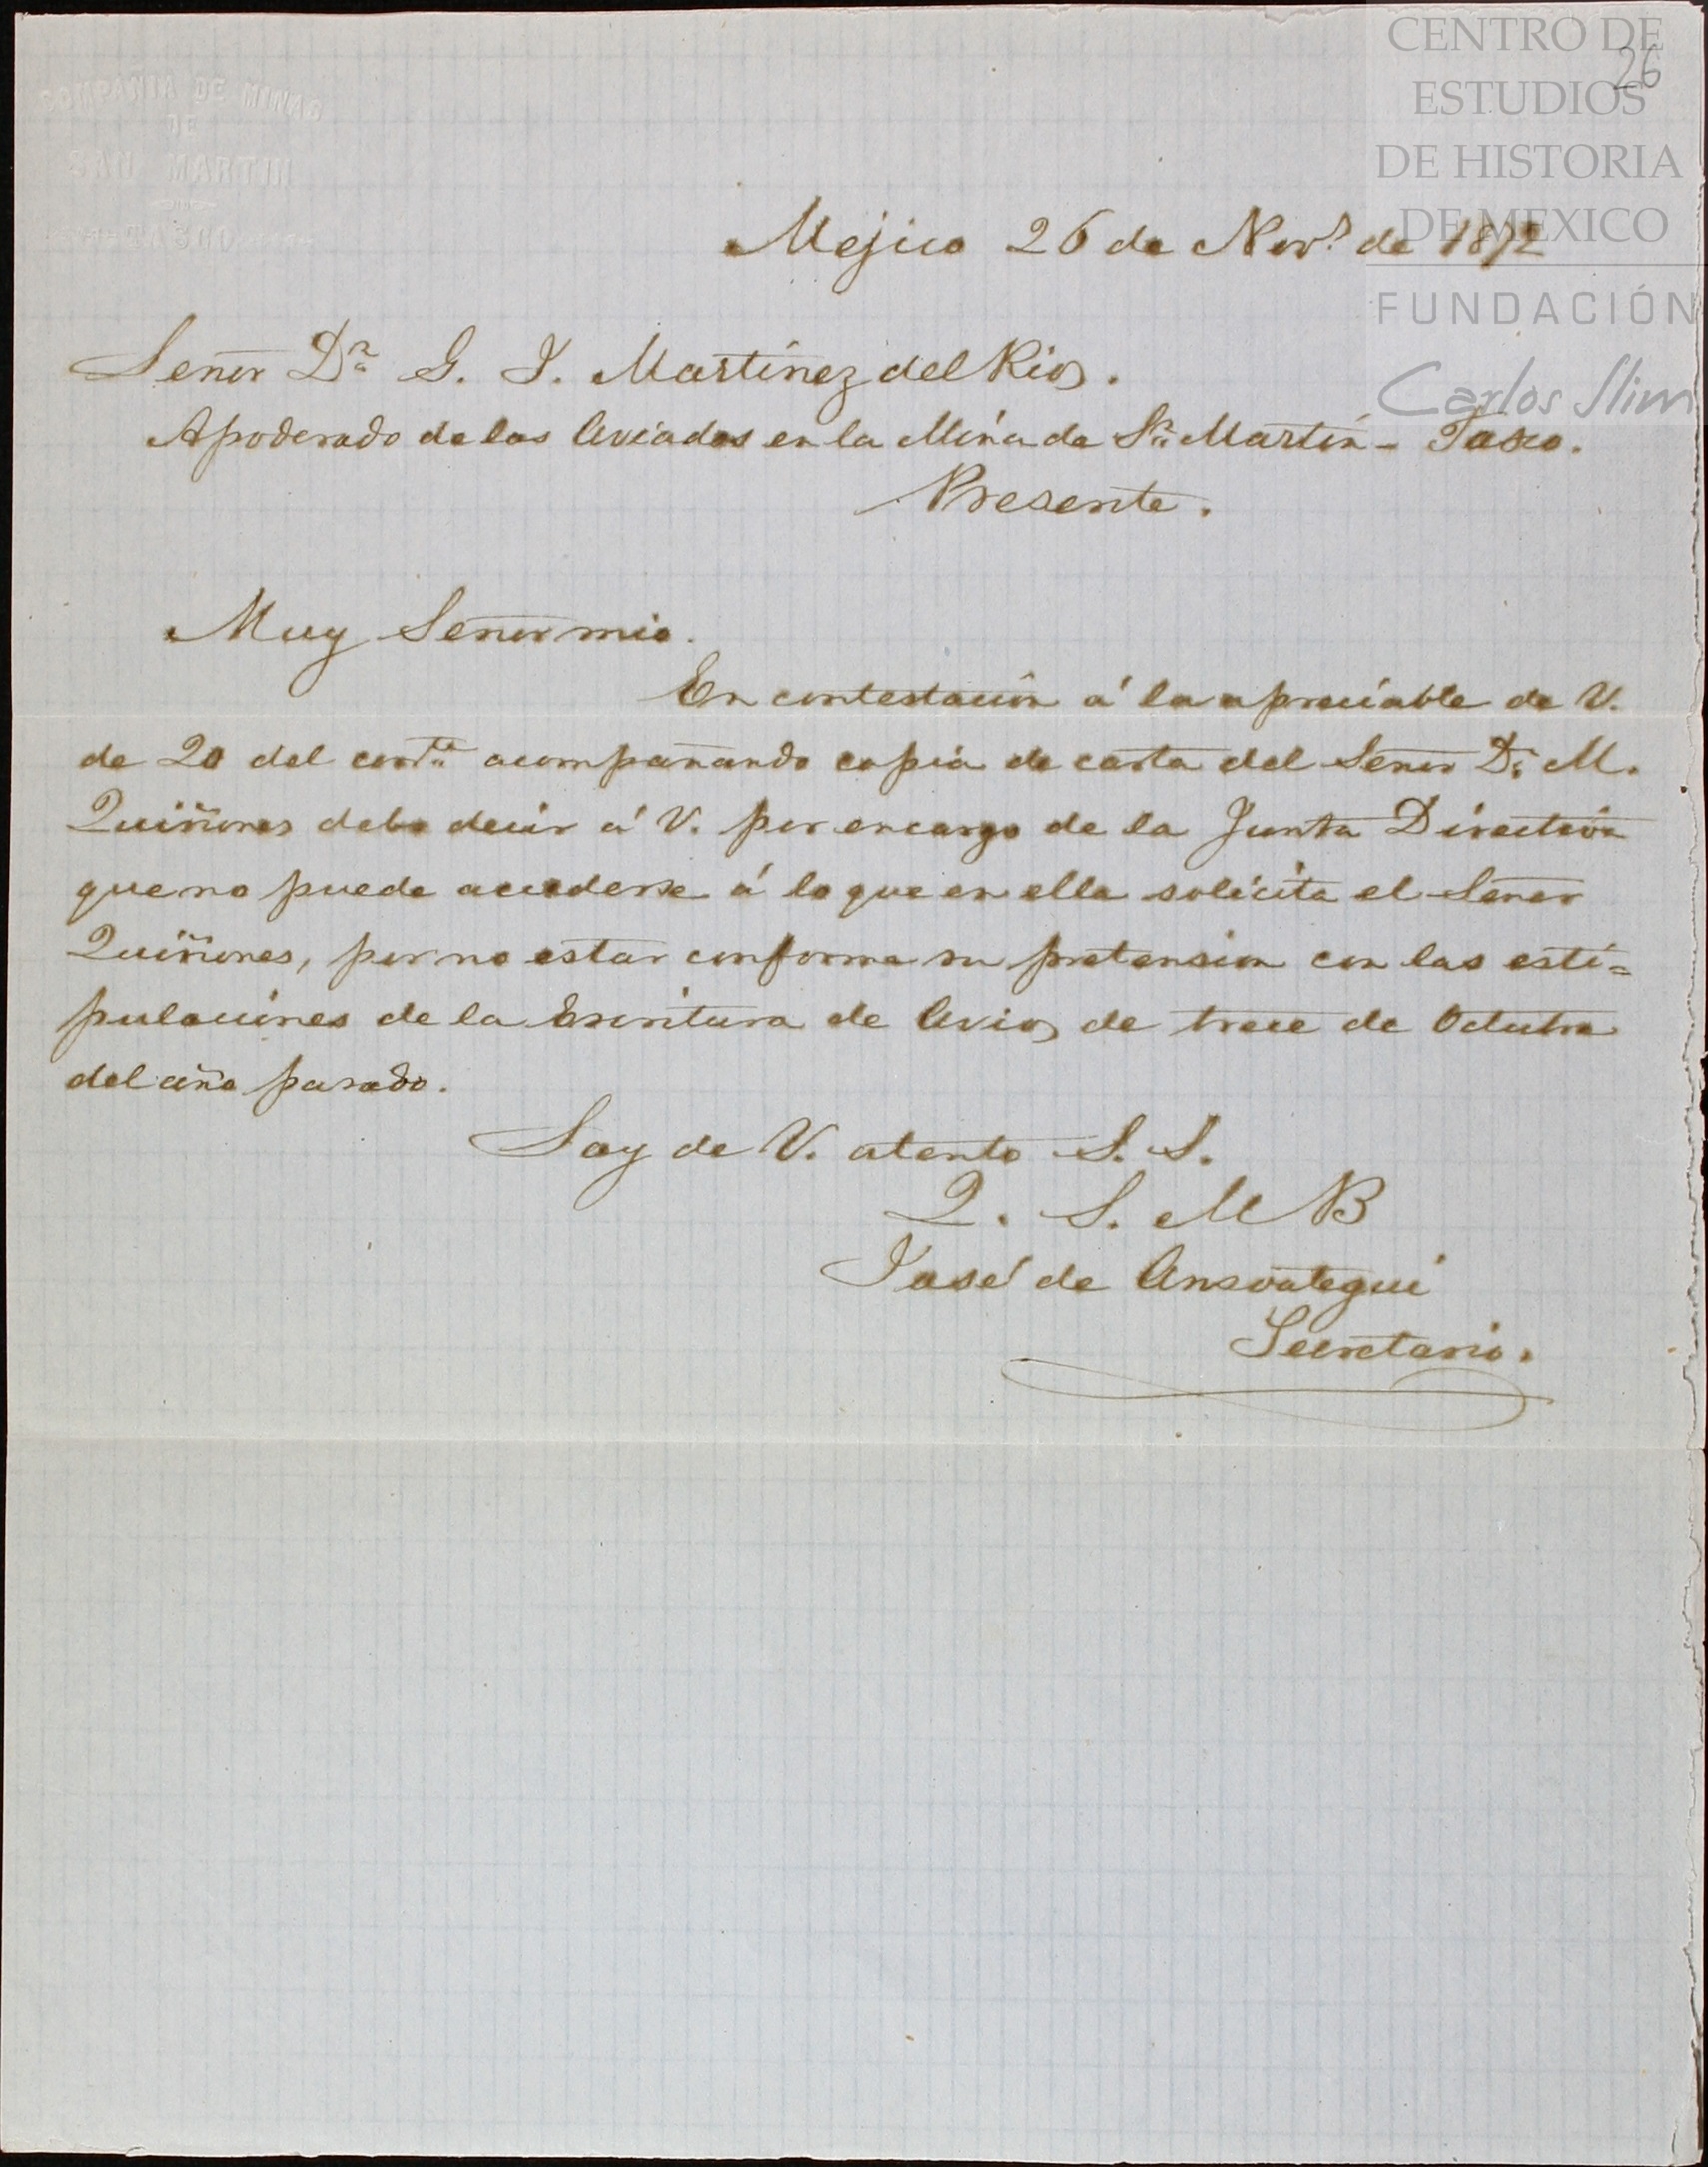 26
CENTRO DE
ESTUDIOS
DE HISTORIA
DE MEXICO
FUNDACIÓN
Carlos Slim
COMPAÑIA DE MINAS
DE
SAN MARTIN
TASCO
Mejico 26 de Nov.e de 1872
Señor Dn G. J. Martinez del Rio.
Apoderado de los Aviados en la Mina de Sn Martin - Tasco.
Presente.
Muy Señor mio.
En contestacion á la apreciable de V.
de 20 del corrte acompañando copia de carta del Señor Dn M.
Quiñones debo decir á V. por encargo de la Junta Directiva
que no puede accederse á lo que en ella solicita el Señor
Quiñones, por no estar conforme su pretension con las esti=
pulaciones de la Escritura de Avio, de trece de Octubre
del año pasado.
Soy de V. atento S. S.
Q. S. M B
José de Ansoategui
Secretario.